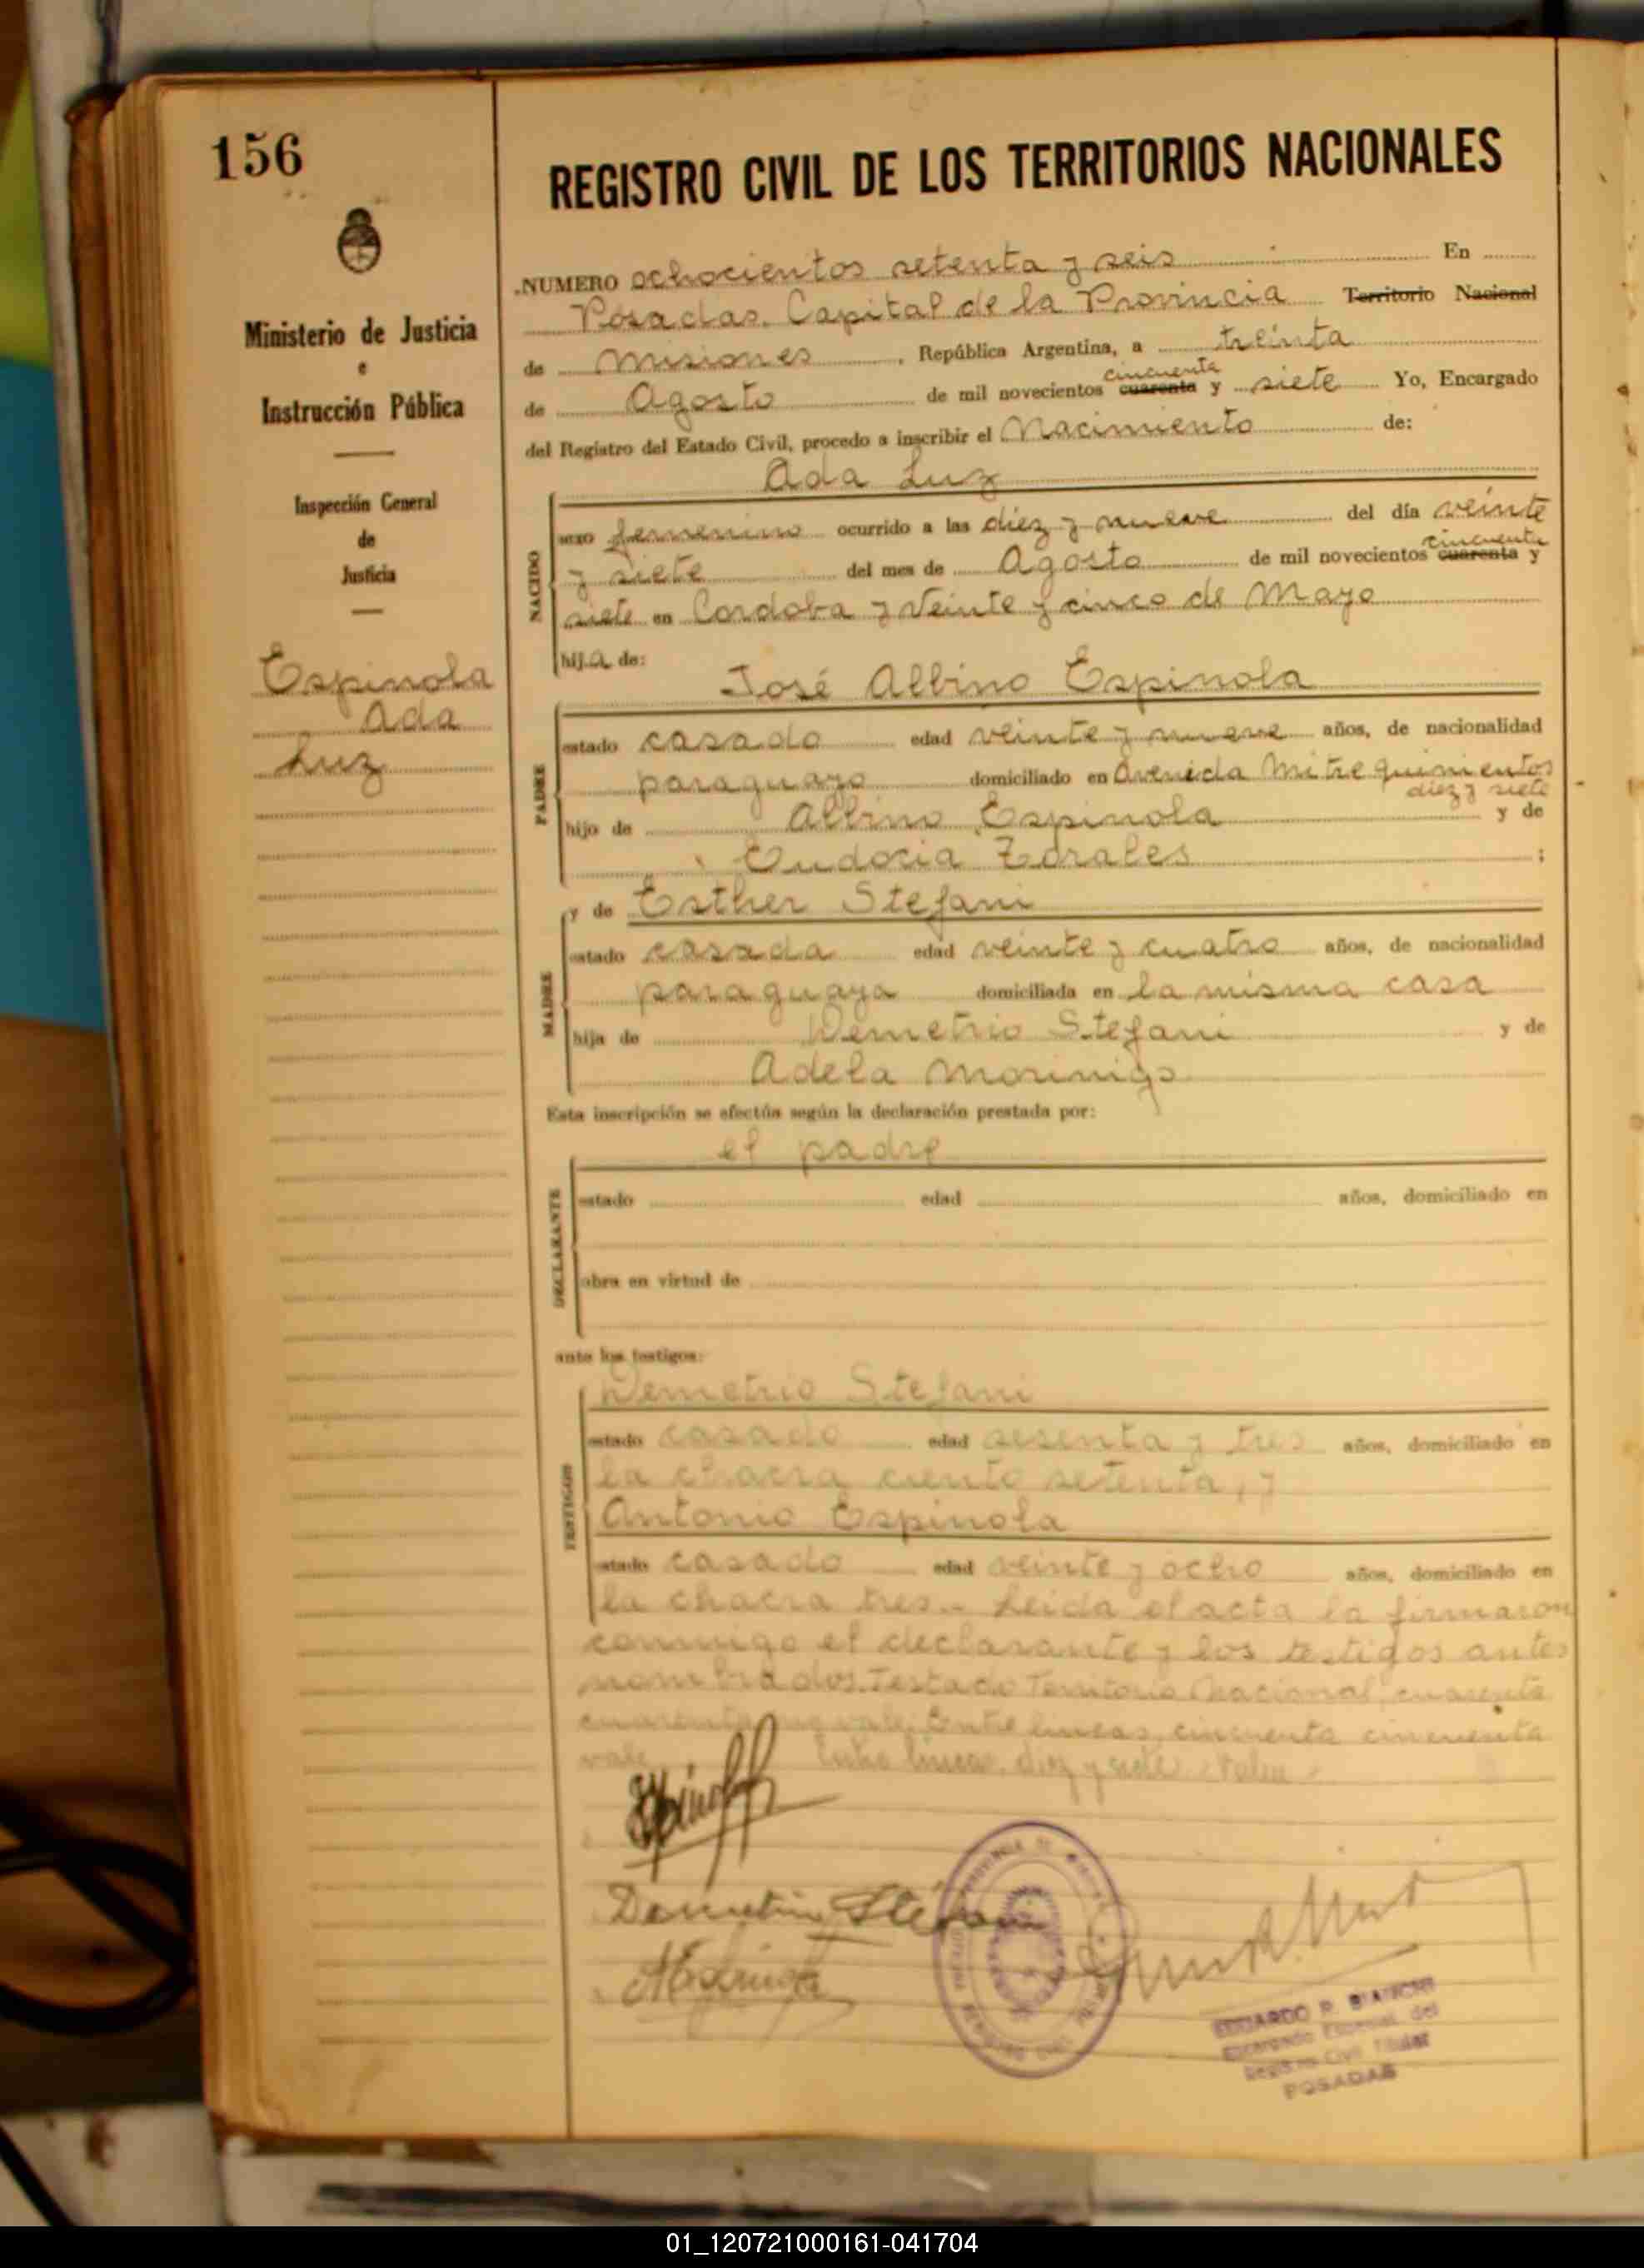 156
Ministerio de Justicia
e
Instrucción Pública
Inspección General
de
Justicia
Espinola
Ada
Luz
REGISTRO CIVIL DE LOS TERRITORIOS NACIONALES
NUMERO ochocientos setenta y seis En
Posadas. Capital de la Provincia Territorio Nacional
de Misiones, República Argentina, a treinta
cincuenta
de Agosto de mil novecientos cuarenta y siete Yo, Encargado
del Registro del Estado Civil, procedo a inscribir el Nacimiento de:
Ada Luz
NACIDO
sexo femenino ocurrido a las diez y nueve del día veinte
cincuenta
y siete del mes de Agosto de mil novecientos cuarenta y
siete en Cordoba y Veinte y cinco de Mayo
hija de:
José Albino Espinola
PADRE
estado casado edad veinte y nueve años, de nacionalidad
paraguayo domiciliado en Avenida Mitre quinientos
diez y siete
hijo de Albino Espinola y de
Eudocia Zorales;
y de Esther Stefani
MADRE
estado casada edad veinte y cuatro años, de nacionalidad
paraguaya domiciliada en la misma casa
hija de Demetrio Stefani y de
Adela Morinigo
Esta inscripción se efectúa según la declaración prestada por:
el padre
DECLARANTE
estado edad años, domiciliado en
obra en virtud de
ante los testigos:
Demetrio Stefani
TESTIGOS
estado casado edad sesenta y tres años, domiciliado en
la chacra ciento setenta, y
Antonio Espinola
estado casado edad veinte y ocho años, domiciliado en
la chacra tres.- Leida el acta la firmaron
conmigo el declarante y los testigos antes
nombrados. Testado Territorio Nacional, cuarenta
cuarenta no vale. Entre lineas, cincuenta cincuenta
vale Entre lineas, diez y siete. Vale.
Demetrio Stéfani
EDUARDO R. BIANCHI
Encargado Especial del
Registro Civil Titular
POSADAS
01_120721000161-041704